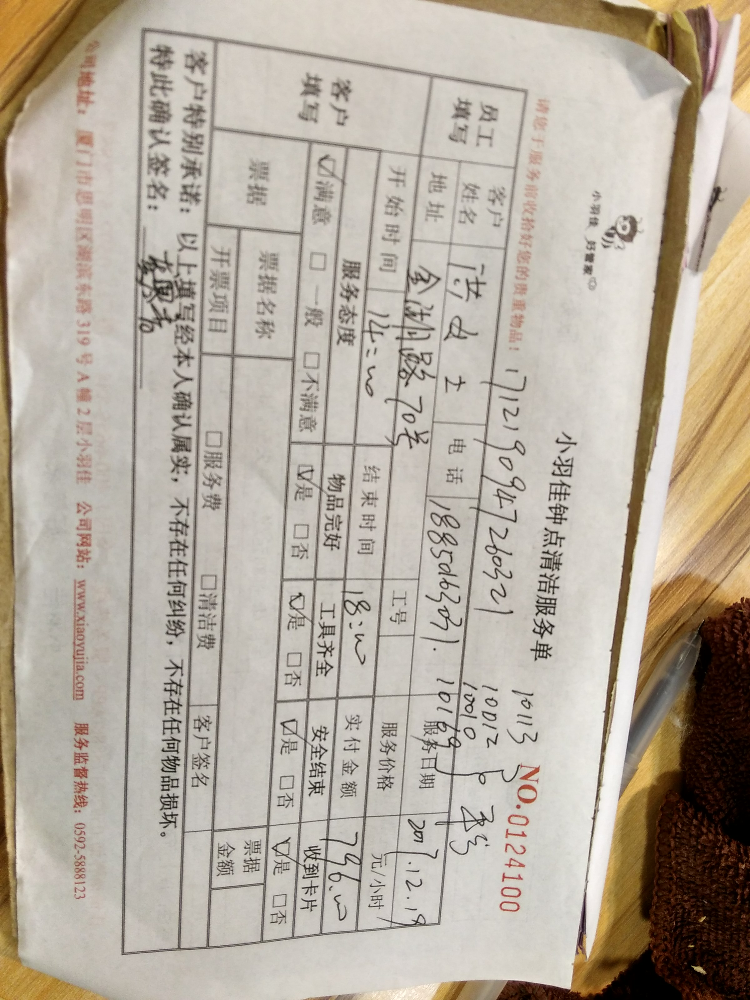 小羽佳 好管家
小羽佳钟点清洁服务单
请您于服务前收拾好您的贵重物品!
NO.0124100
1712190947260321
10113
10012
10010
10169
员工填写
客户姓名 洪女士 电话 18850163071. 服务日期 2017.12.19
地址 金湖路70号 工号 服务价格 元/小时
客户填写
开始时间 14:00 结束时间 18:00 实付金额 796.00
服务态度 物品完好 工具齐全 安全结束 收到卡片
☑满意 □一般 □不满意 ☑是 □否 ☑是 □否 ☑是 □否 ☑是 □否
票据 票据名称 票据金额
开票项目 □服务费 □清洁费 客户签名
客户特别承诺:以上填写经本人确认属实,不存在任何纠纷,不存在任何物品损坏。
特此确认签名:
公司地址:厦门市思明区湖滨东路319号A幢2层小羽佳 公司网站:www.xiaoyujia.com 服务监督热线:0592-5888123